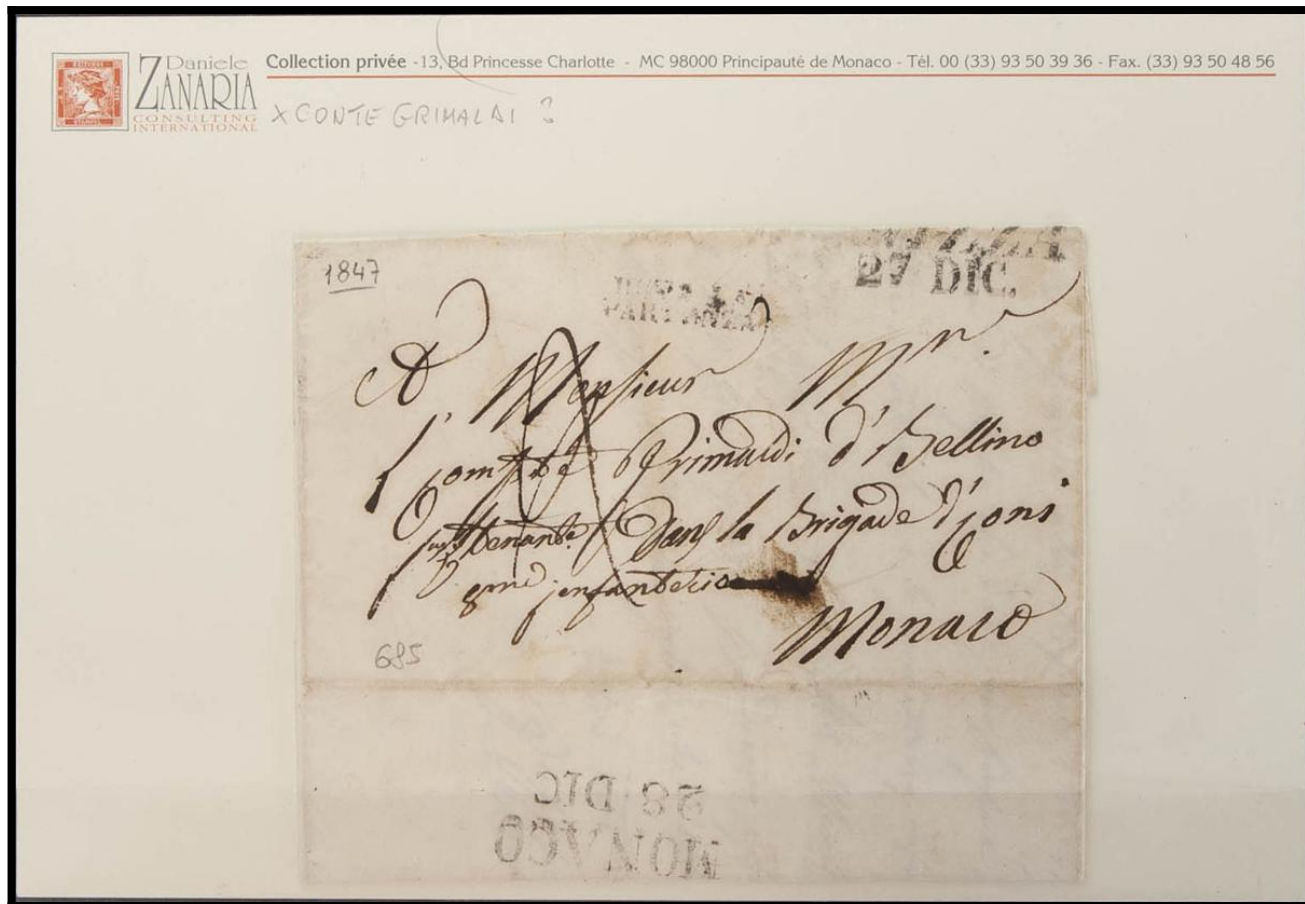 Daniele
ZANARIA
CONSULTING
INTERNATIONAL
Collection privée - 13, Bd Princesse Charlotte - MC 98000 Principauté de Monaco - Tél. 00 (33) 93 50 39 36 - Fax. (33) 93 50 48 56
X CONTE GRIMALDI ?
1847
27 DIC.
A Monsieur Mr.
Grimaldi d'Bellino
dans la Brigade d'Coni
Monaco
685
28 DIC
MONACO